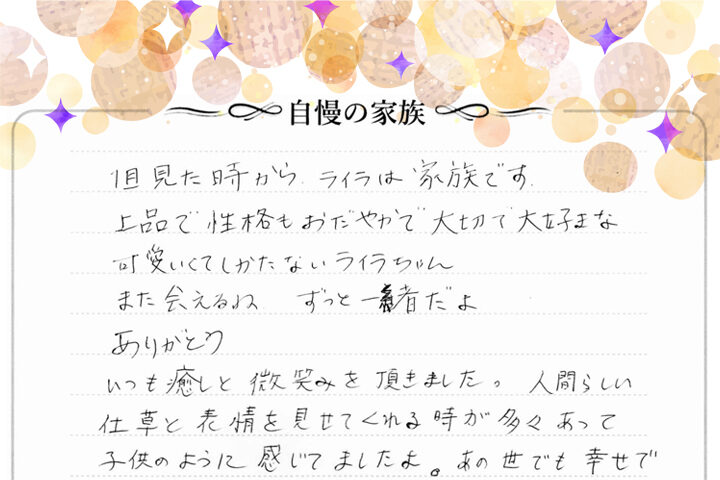 自慢の家族
1目見た時から、ライラは家族です。
上品で性格もおだやかで大切で大好きな
可愛いくてしかたないライラちゃん
また会えるね ずっと一緒だよ
ありがとう
いつも癒しと微笑みを頂きました。人間らしい
仕草と表情を見せてくれる時が多々あって
子供のように感じてましたよ。あの世でも幸せで